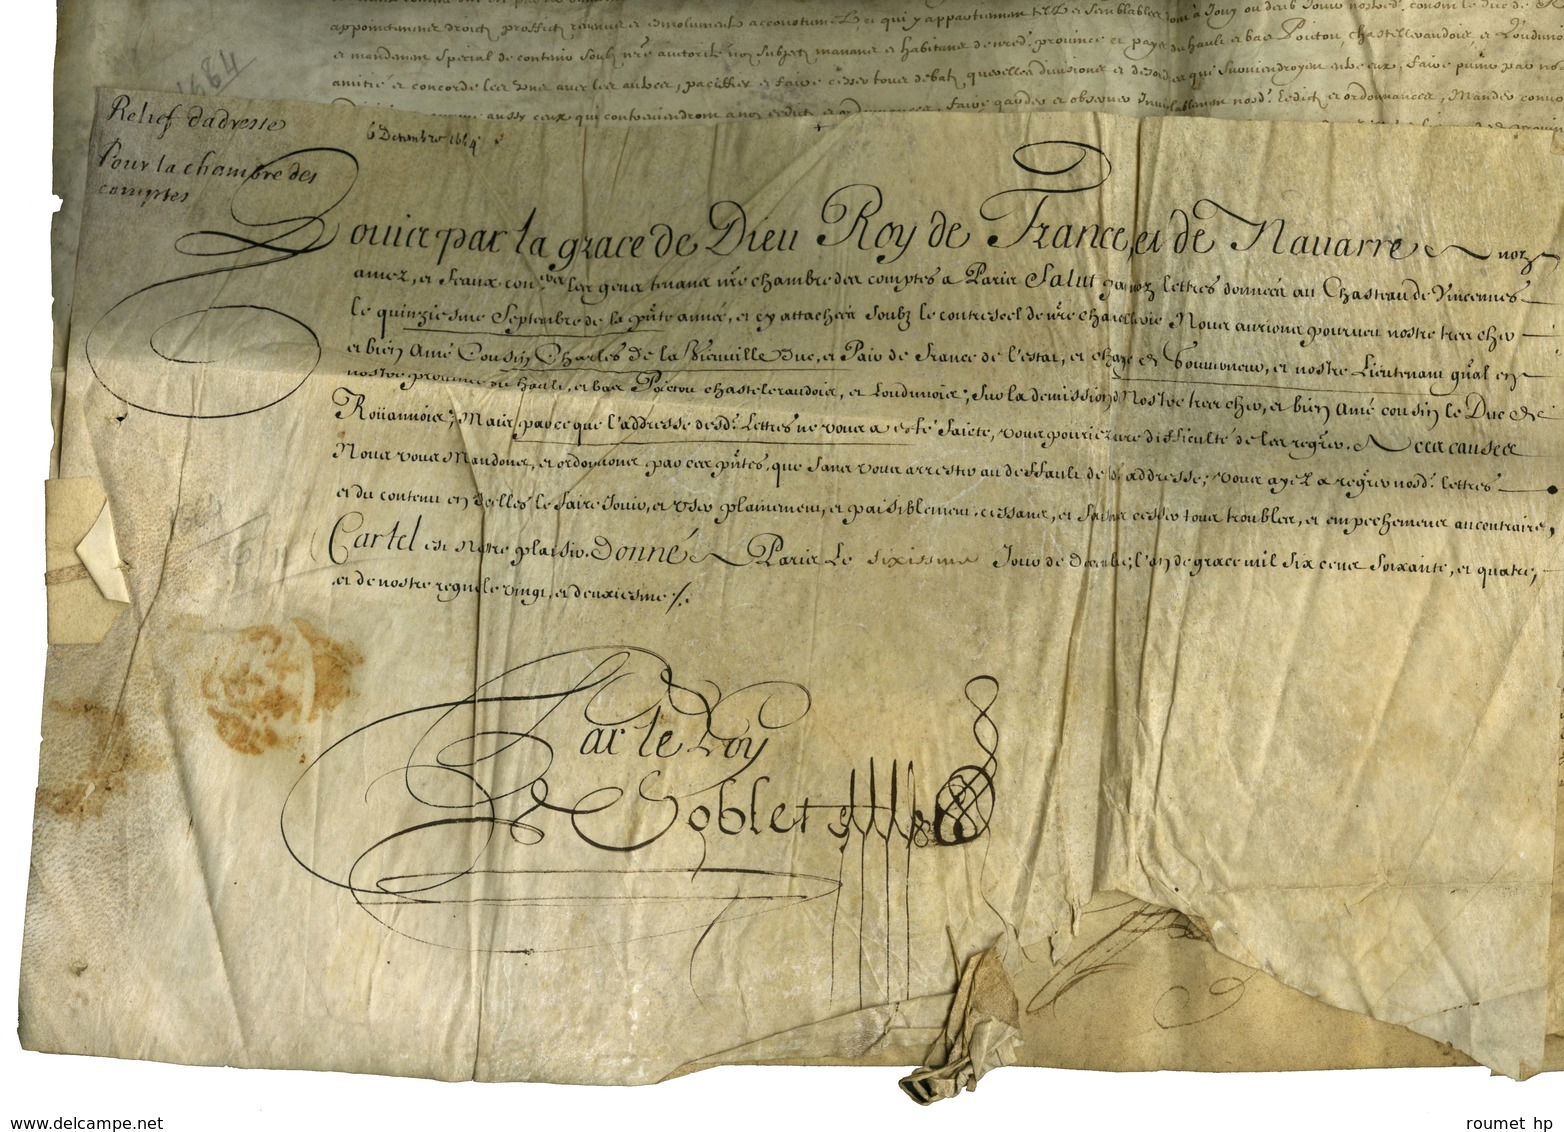 appointemens droictz proffictz revenus et esmolumentz accoutumez et qui y appartiennent telz et semblables
et mandement special de contenir soubz nre autorité noz subjectz manans et habitans de nred. province et pays de hault et bas Poictou, chastelleraudois et Loudunois
amitié et concorde les uns avec les autres, paciffier et faire cesser tous debatz querelles divisions et desordres qui surviendroyent entre eux, faire punir par nos
aussy ceux qui contreviendront a noz edictz et ordonnances, faire garder et observer Inviolablement nosd. Edictz et ordonnances, Mander convo
1684
Relief dadresse
Pour la chambre des
comptes
6 Decembre 1664
Louis par la grace de Dieu Roy de France, et de Navarre A noz
amez, et feaux coners les gens tenans nre chambre des comptes a Paris Salut par noz lettres données au Chasteau de Vincennes
le quinziesme Septembre de la pnte année, et cy attachées soubz le contrescel de nre chancellerie Nous aurions pourveu nostre tres cher
et bien Amé Cousin Charles de la Vieuville Duc, et Pair de France de l'estat, et charge de Gouverneur, et nostre Lieutenant gnal en
nostre province du hault, et bas Poictou chasteleraudois, et Loudunois; sur la demission de Nostre tres cher, et bien Amé cousin le Duc de
Roüannois; Mais parce que l'addresse desd. Lettres ne vous a esté faicte, vous pourriez faire difficulté de les regrer. A ces causes
Nous vous Mandons, et ordonnons par ces pntes, que sans vous arrester au deffault de lad addresse; vous ayez a regrer nosd. lettres
et du contenu en Icelles le faire Jouir, et user plainement, et paisiblement, cessans, et faisant cesser tous troubles, et empeschemens au contraire,
Car tel est Nostre plaisir. Donné A Paris Le sixiesme Jour de Decembre; l'an de grace mil six cens soixante, et quatre;
et de nostre regne le vingt, et deuxiesme ./.
Par le Roy
Goblet
roumet-histoire.com
roumet hp